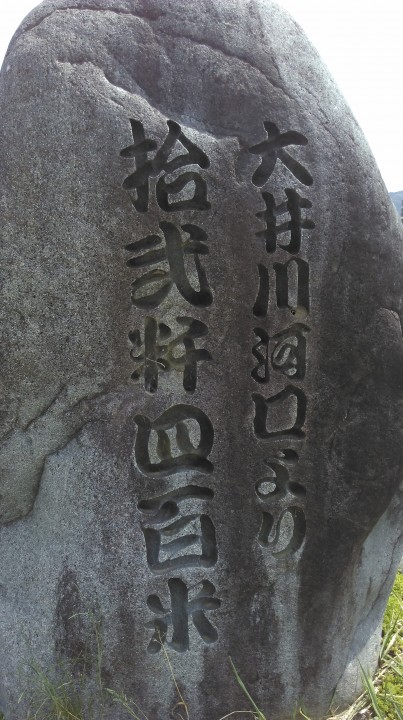 大井川河口より
拾弐粁四百米